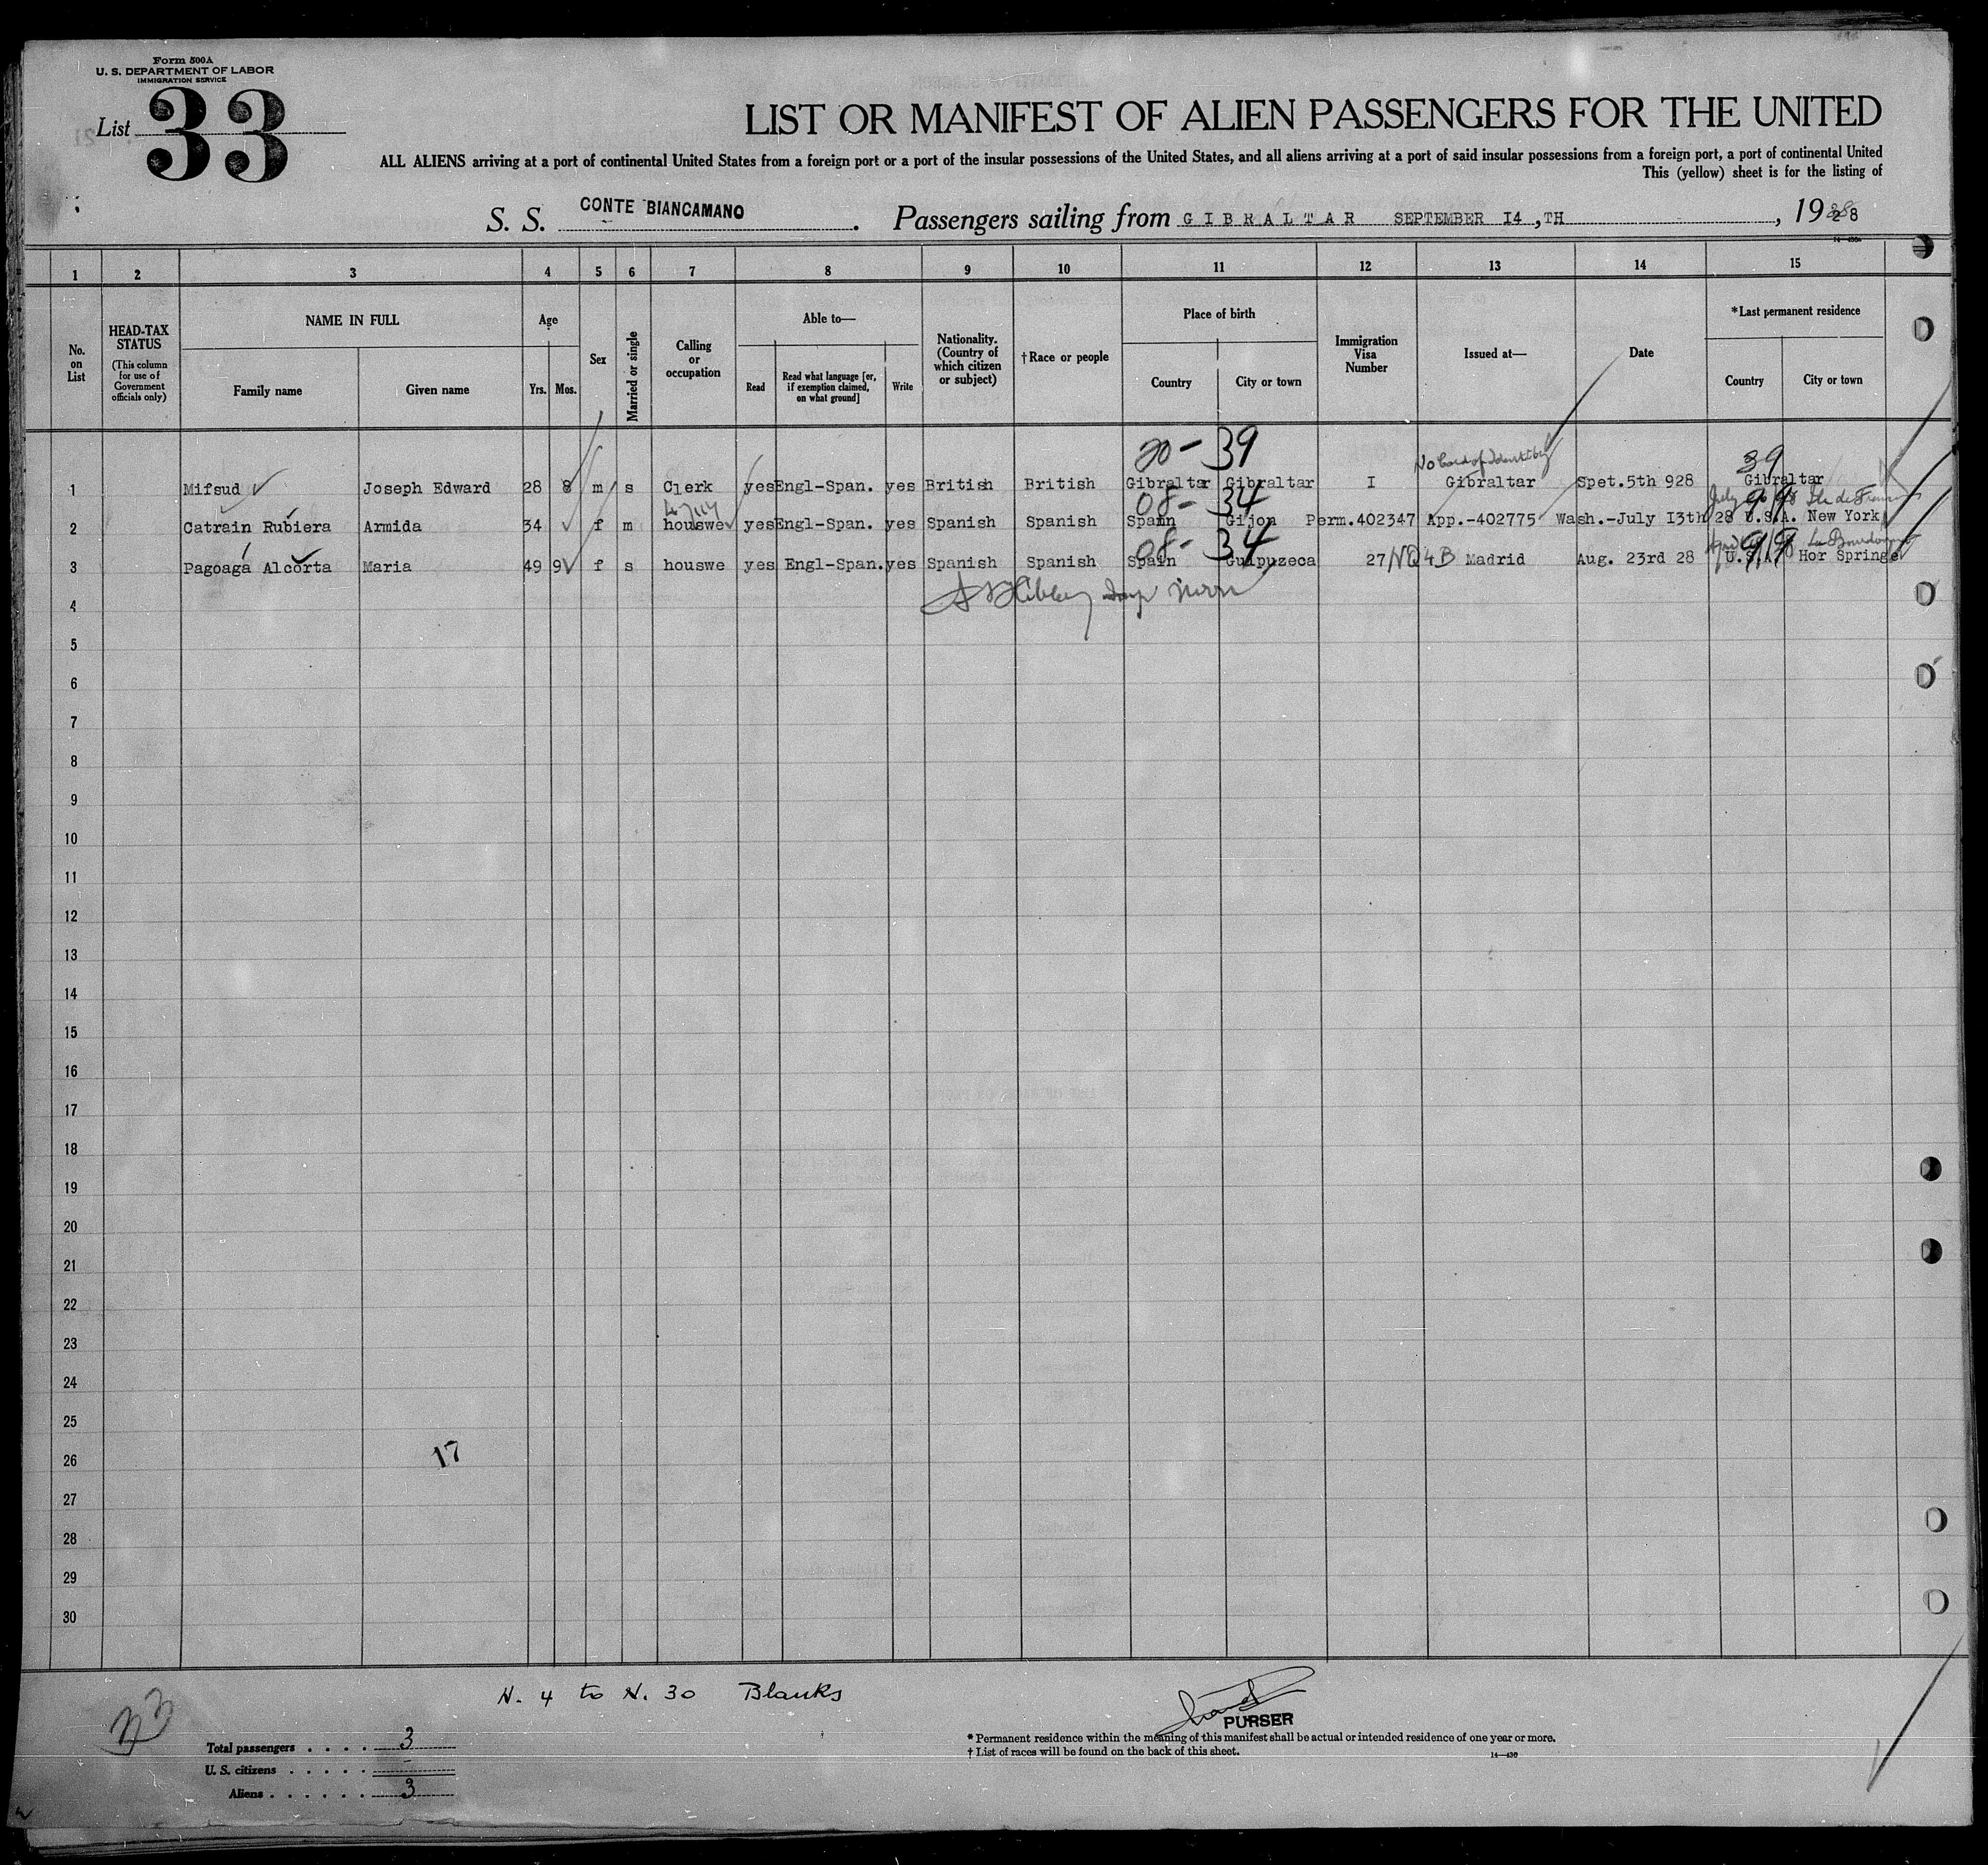 Form 500A
U. S. DEPARTMENT OF LABOR
IMMIGRATION SERVICE
List 33
LIST OR MANIFEST OF ALIEN PASSENGERS FOR THE UNITED
ALL ALIENS arriving at a port of continental United States from a foreign port or a port of the insular possessions of the United States, and all aliens arriving at a port of said insular possessions from a foreign port, a port of continental United
This (yellow) sheet is for the listing of
S. S. CONTE BIANCAMANO. Passengers sailing from GIBRALTAR SEPTEMBER I4,TH, 1928
1 2 3 4 5 6 7 8 9 10 11 12 13 14 15
No. on List
HEAD-TAX STATUS (This column for use of Government officials only)
NAME IN FULL
Family name
Given name
Age
Yrs. Mos.
Sex
Married or single
Calling or occupation
Able to—
Read
Read what language [or, if exemption claimed, on what ground]
Write
Nationality. (Country of which citizen or subject)
†Race or people
Place of birth
Country
City or town
Immigration Visa Number
Issued at—
Date
*Last permanent residence
Country
City or town
20-39 39
1 Mifsud Joseph Edward 28 8 m s Clerk yes Engl-Span. yes British British Gibraltar Gibraltar I Gibraltar Spet.5th 928 Gibraltar
08-34 99
2 Catrain Rubiera Armida 34 f m houswe yes Engl-Span. yes Spanish Spanish Spain Gijon Perm.402347 App.-402775 Wash.-July I3th 28 U.S.A. New York
08-34 99
3 Pagoaga Alcorta Maria 49 9 f s houswe yes Engl-Span. yes Spanish Spanish Spain Guipuzeca 27 NQ 4B Madrid Aug. 23rd 28 U.S.A. Hor Springe
4
5
6
7
8
9
10
11
12
13
14
15
16
17
18
19
20
21
22
23
24
25
26
17
27
28
29
30
N. 4 to N. 30 Blanks
33
PURSER
Total passengers . . . . 3
U. S. citizens . . . . . –
Aliens . . . . . . 3
* Permanent residence within the meaning of this manifest shall be actual or intended residence of one year or more.
† List of races will be found on the back of this sheet.
14—430